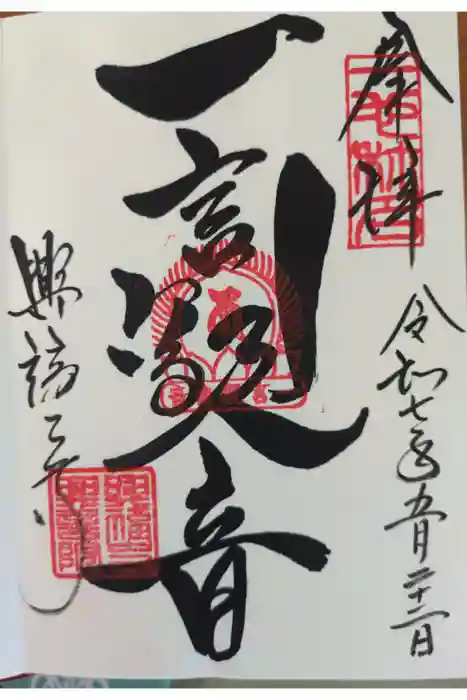 奉拝
令和七年五月二十二日
一言観音
興福寺